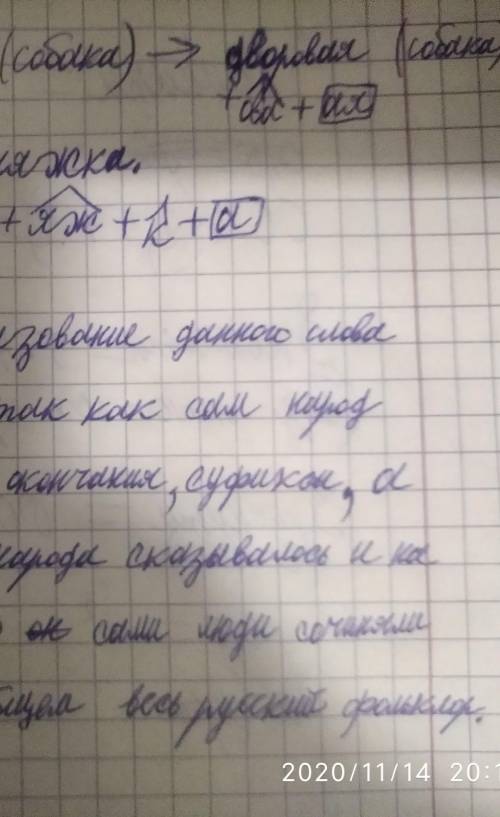 (собака) → дворовая (собака
+ ова + ая
яжка.
+ яж + к + а
зование данного слова
так как сам народ
окончания, суфикси, а
народа сказывалось и на
сами люди сочиняли
весь русский фольклор.
2020/11/14 20:1